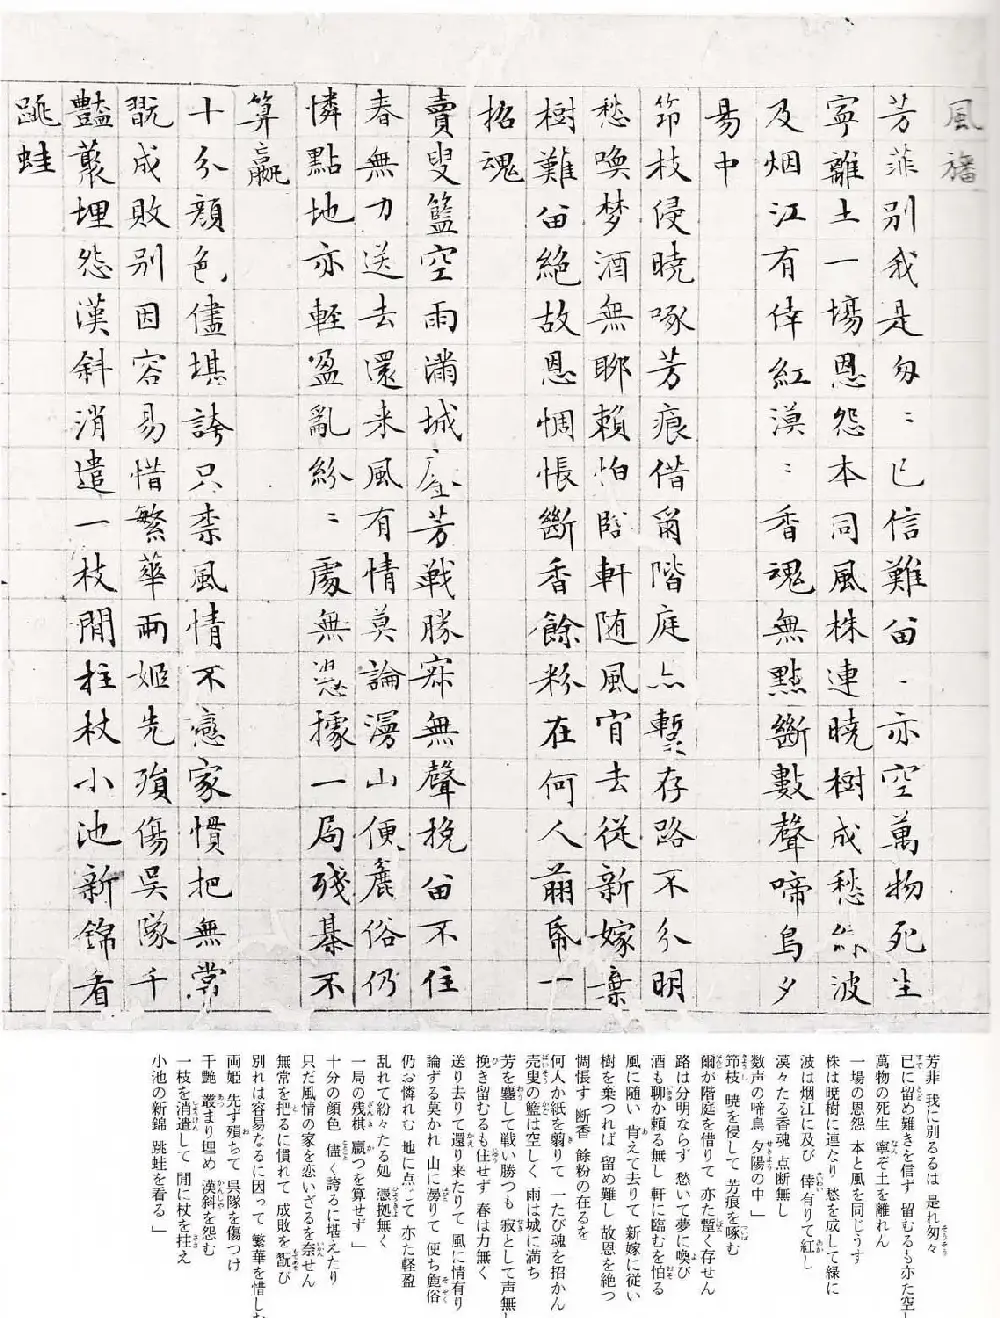 風旛
芳菲別我是匆〻已信難畄〻亦空萬物死生
寧離土一場恩怨本同風株連曉樹成愁綠波
及烟江有倖紅漠〻香魂無點斷數聲啼鳥夕
昜中
笻枝侵曉啄芳痕借爾階庭亦蹔存路不分明
愁喚梦酒無聊賴怕臨軒随風肯去從新嫁棄
樹難畄絕故恩惆悵斷香餘粉在何人翦帋一
招魂
賣叟籃空雨滿城塵芳戰勝寂無聲挽畄不住
春無力送去還来風有情莫論澷山便麁俗仍
憐點地亦輕盈亂紛〻處無憑據一局殘棊不
算贏
十分顏色儘堪誇只柰風情不戀家慣把無常
翫成敗別因容易惜繁華兩姬先殞傷吳隊千
豔叢埋怨漢斜消遣一枝閒拄杖小池新錦看
跳蛙
芳菲 我に別るるは 是れ匆々
已に留め難きを信ず 留むるも亦た空し
萬物の死生 寧ぞ土を離れん
一場の恩怨 本と風を同じうす
株は曉樹に連なり 愁を成して緑に
波は烟江に及び 倖有りて紅し
漠々たる香魂 点断無し
数声の啼鳥 夕陽の中」
笻枝 暁を侵して 芳痕を啄む
爾が階庭を借りて 亦た蹔く存せん
路は分明ならず 愁いて夢に喚び
酒も聊か頼る無し 軒に臨むを怕る
風に随い 肯えて去りて 新嫁に従い
樹を棄つれば 留め難し 故恩を絶つ
惆悵す 断香 餘粉の在るを
何人か紙を翦りて 一たび魂を招かん
売叟の籃は空しく 雨は城に満ち
芳を塵して戦い勝つも 寂として声無し
挽き留むるも住せず 春は力無く
送り去りて還り来たりて 風に情有り
論ずる莫かれ 山に澷りて 便ち麁俗
仍お憐れむ 地に点じて 亦た軽盈
乱れて紛々たる処 憑拠無く
一局の残棋 贏つを算せず」
十分の顔色 儘く誇るに堪えたり
只だ風情の家を恋いざるを奈せん
無常を把るに慣れて 成敗を翫び
別れは容易なるに因って 繁華を惜しむ
両姫 先ず殞って 呉隊を傷つけ
千艶 叢まり埋め 漢斜を怨む
一枝を消遣して 閒に杖を拄え
小池の新錦 跳蛙を看る」